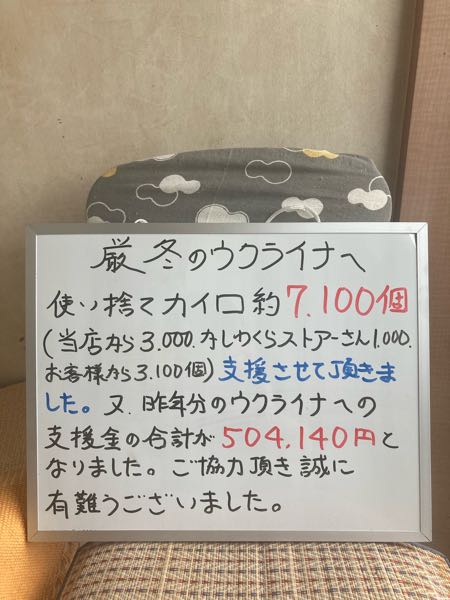 厳冬のウクライナへ
使い捨てカイロ約7.100個
(当店から3.000.かしわくらストアーさん1.000.
お客様から3.100個)支援させて頂きま
した。又.昨年分のウクライナへの
支援金の合計が504.140円と
なりました。ご協力頂き誠に
有難うございました。